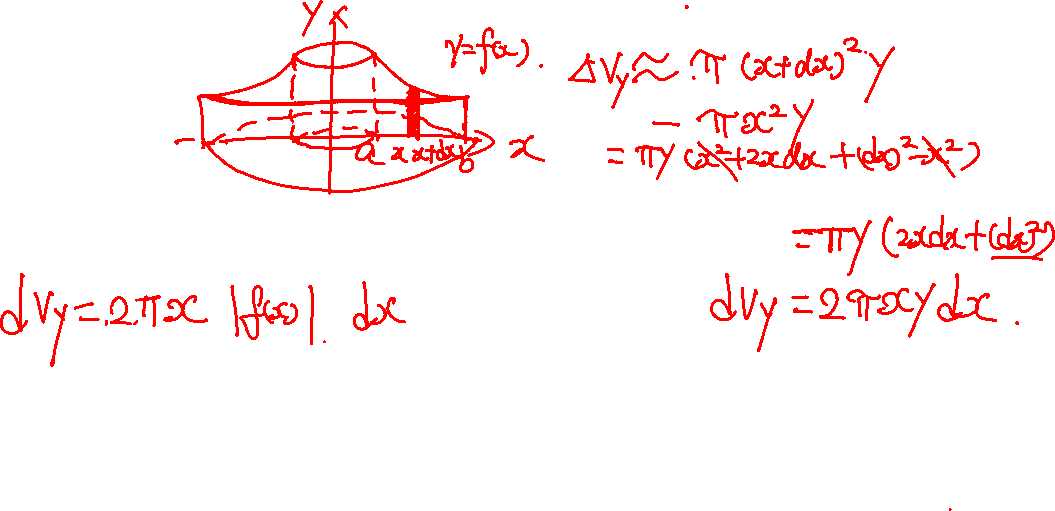 y
y=f(x).
a x x+dx b
x
ΔVy ≈ π (x+dx)² y
− πx² y
= πy (x²+2xdx+(dx)²−x²)
= πy (2xdx+(dx)²)
dVy = 2πx |f(x)| dx
dVy = 2πxy dx.